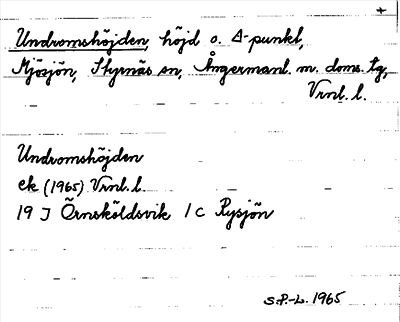 +
Undromshöjden, höjd o. Δ-punkt,
Mjösjön, Styrnäs sn, Ångermanl. m. doms. tg,
Vrnl. l.
Undromshöjden
ek (1965) Vrnl. l.
19 J Örnsköldsvik 1 c Rysjön
S.P.-L. 1965